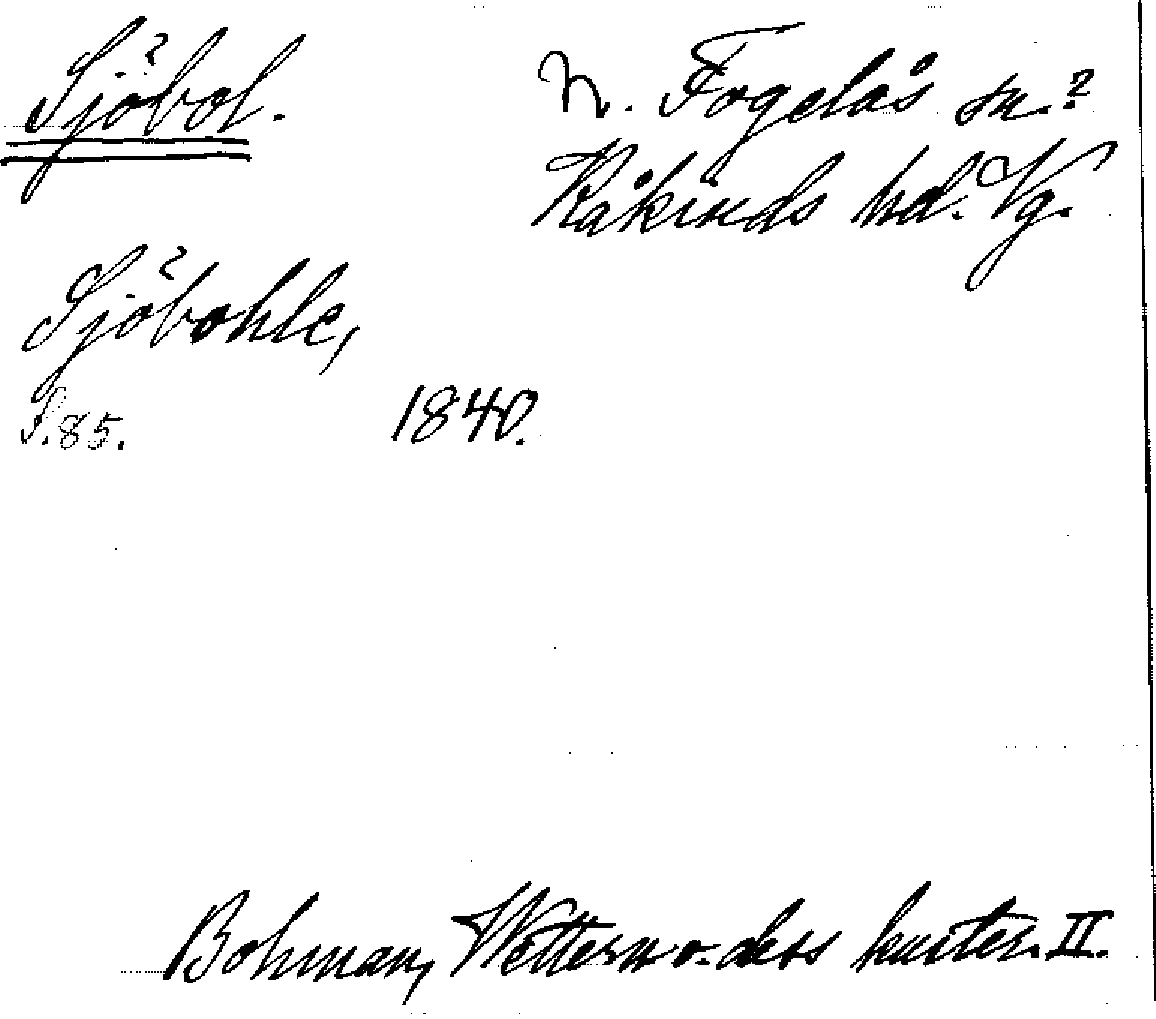 Sjöbol.
N. Fogelås sn.?
Kåkinds hd. Vg.
Sjöbohle,
S. 85. 1840.
Bohman, Wettern o. dess kuster. II.